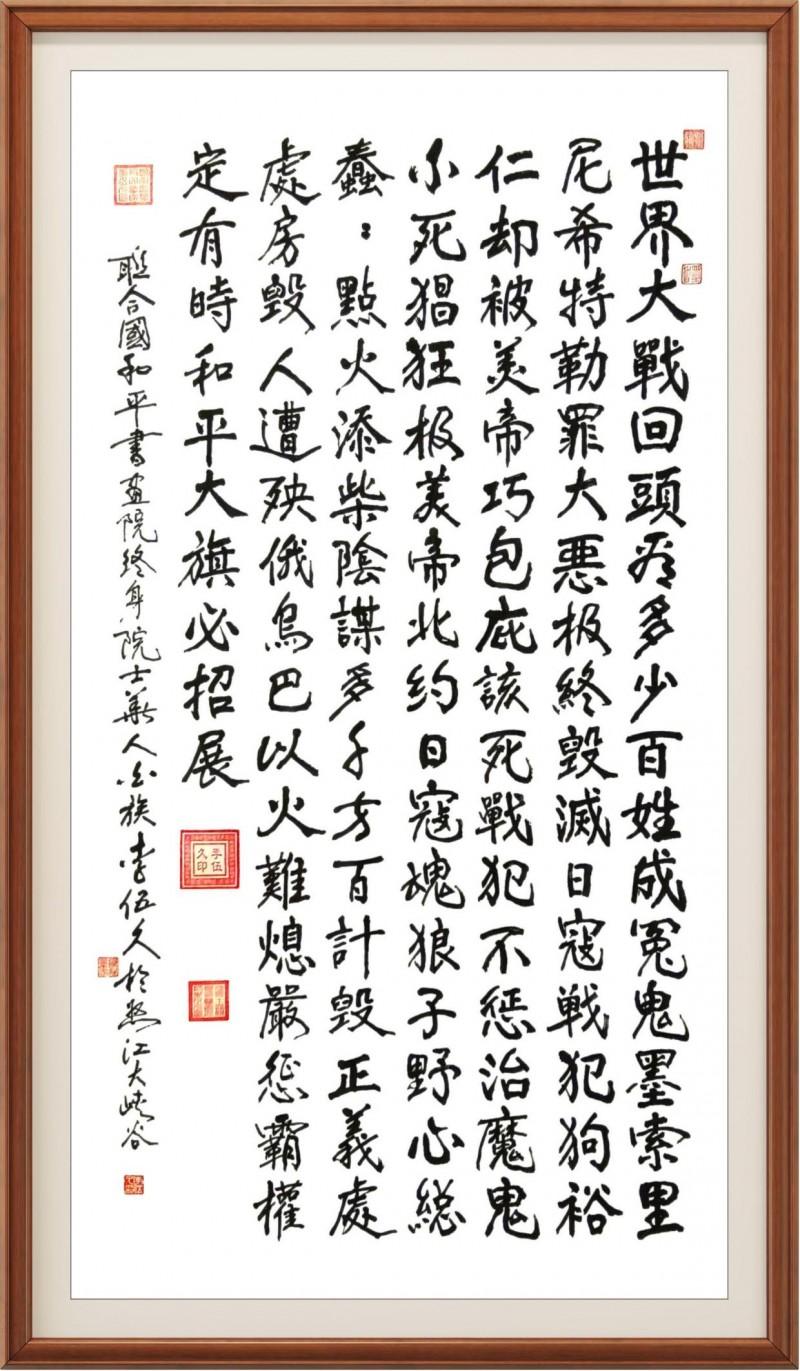 世界大戰回頭看多少百姓成冤鬼墨索里
尼希特勒罪大惡极終毀滅日寇戦犯狗裕
仁却被美帝巧包庇該死戰犯不惩治魔鬼
小死猖狂极美帝北约日寇魂狼子野心総
蠢：點火添柴陰謀多千方百計毀正義處
處房毀人遭殃俄烏巴以火難熄嚴惩霸權
定有時和平大旗必招展
聯合國和平書画院终身院士華人白族李伍久於怒江大峡谷
李伍
久印